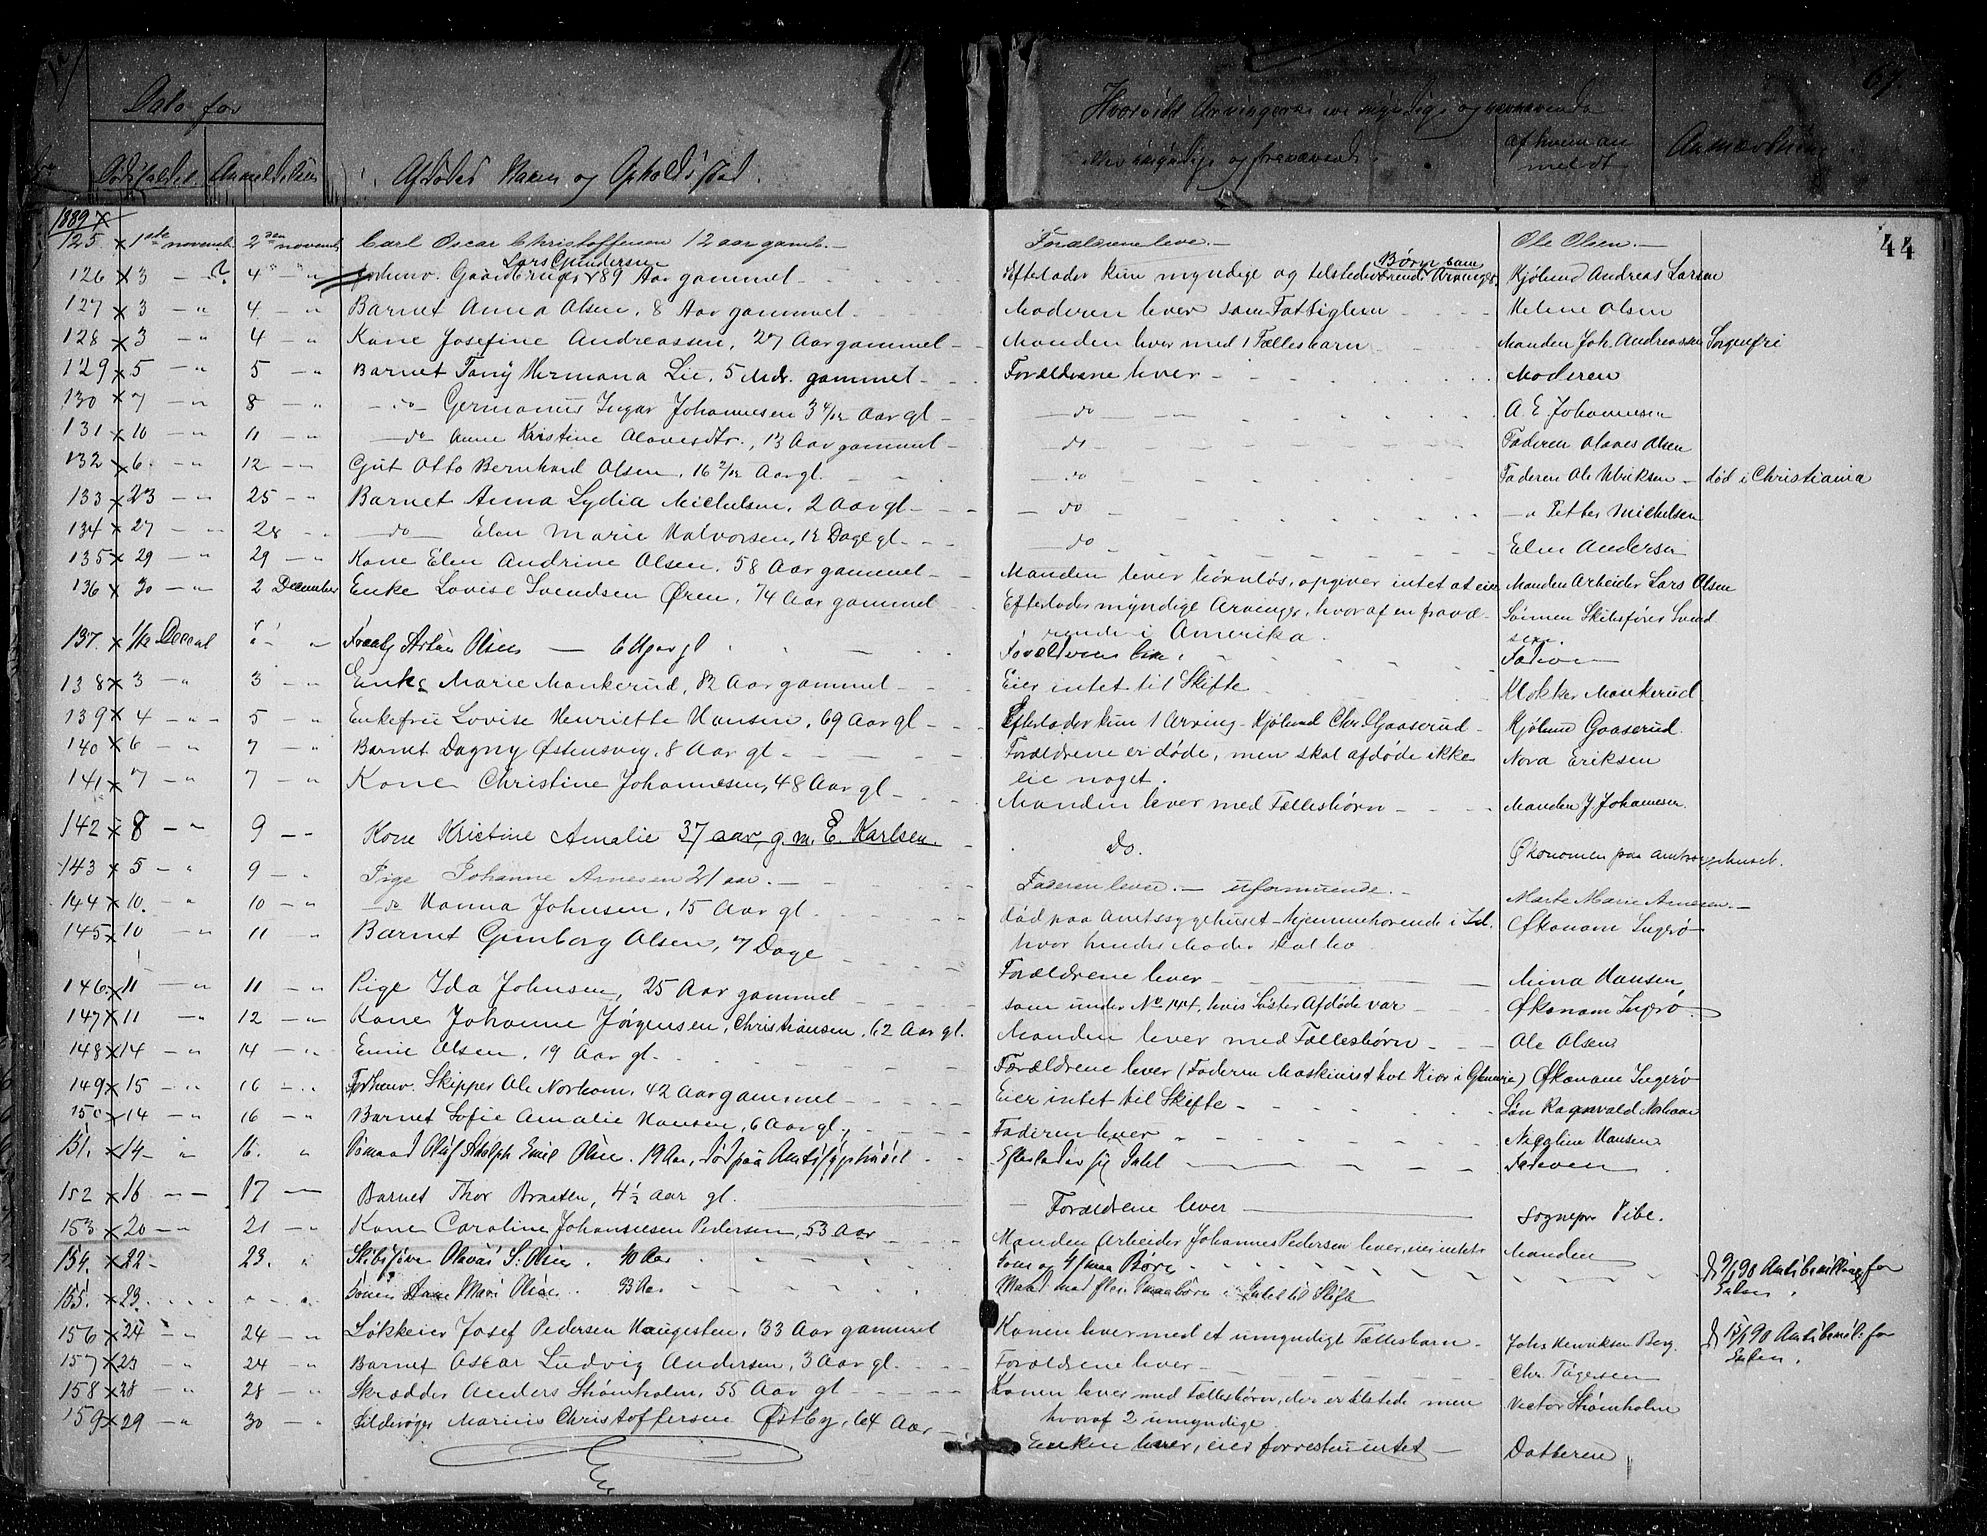 67.
Dato for
Dødsfaldet Anmeldelsen
Afdødes Navn og Opholdssted.
Hvorvidt Arvingerne ere myndige og nærværende
eller umyndige og fraværende.
af hvem an
meldt
Anmærkning
44
1889
125. x 1ste novemb 2den novemb Carl Oscar Christoffersen 12 aar gaml. — Forældrene leve. — Ole Olsen. —
Lars Gundersen
Børn, som
126 x 3 — 4 " " forhenv. Gaardbruger 89 Aar gammel Efterlader kun myndige og tilstedeværende Arvinger. Kjølund Andreas Larsen
127 x 3 — " 4 — " Barnet Anna Olsen, 8 Aar gammel Moderen lever som Fattiglem Helene Olsen
128 x 3 — " 4 — " Kone Josefine Andreassen, 27 Aar gammel Manden lever med 1 Fællesbarn Manden Joh. Andreassen Sorgenfri
129 x 5 — " 5 — " Barnet Fany Hermana Lie, 5 Mdr. gammel Forældrene lever Moderen
130 x 7 — " 8 — " — do — Germanus Ingar Johannesen 3 4/12 Aar gl — do — A. E. Johannesen
131 x 10 — " 11 — " — do — Anne Kristine Olavesdtr., 13 Aar gammel do Faderen Olaves Olsen
132 x 6. — " 12 — " Gut Otto Bernhard Olsen, 16 2/12 Aar gl. do Faderen Ole Ulriksen — død i Christiania
133 x 23 — " 25 — " Barnet Anna Lydia Michelsen, 2 Aar gl — do — " Petter Michelsen
134 x 27 — " 28 " — do — Elen Marie Halvorsen, 12 Dage gl. — do Elen Andersen
135 x 29 — " 29 — " Kone Elen Andrine Olsen, 58 Aar gammel Manden lever børnløs, opgiver intet at eie Manden Arbeider Lars Olsen
136 x 30 — " 2 December Enke Lovise Svendsen Øren, 74 Aar gammel Efterlader myndige Arvinger, hvoraf en fravæ- Sønnen Skibsfører Svend
rende i Amerika. sen.
137. x 1/12 Decemb " " Artur Olsen — 6 Uger gl Forældrene leve. Faderen
138 x 3 — " 3 — " Enke Marie Mankerud, 82 Aar gammel Eier intet til Skifte Klokker Mankerud
139 x 4 — " — 5 — " Enkefru Lovise Henriette Hansen, 69 Aar gl Efterlader kun 1 Arving — Kjølund Chr. Gaaserud Kjølund Gaaserud.
140 x 6 — " 7 — " Barnet Dagny Østensvig, 8 Aar gl Forældrene er døde, men skal afdøde ikke Nora Eriksen
eie noget.
141 x 7 — " 7 — " Kone Christine Johannesen, 48 Aar gl Manden lever med Fællesbørn Manden J. Johannesen.
142 x 8 — " 9 — " Kone Kristine Amalie 37 aar, g. m. E. Karlsen. do. Økonomen paa Amtssygehuset.
143 x 5 — " 9 — " Pige Johanne Arnesen 21 aar. — Faderen lever. — uformuende. — Marte Marie Arnesen. —
144 x 10. — " 10 — " — do Hanna Johnsen, 15 Aar gl. død paa Amtssygehuset hjemmehørende i Id. Økonom Ingerø
hvor hendes Moder skal bo
145 x 10 " 11 — " Barnet Gunborg Olsen, 7 Dage Forældrene lever Mina Hansen
146 x 11 — " 11 — " Pige Ida Johnsen, 25 Aar gammel som under No 144, hvis Søster Afdøde var Økonom Ingerø
147 x 11 — " 12 — " Kone Johanne Jørgensen, Christiansen, 62 Aar gl. Manden lever med Fællesbørn Ole Olsen
148 x 14 — " 14 — " Emil Olsen, 19 Aar gl. Forældrene lever (Faderen Maskinist hos Kiær i Glemmen) Økonom Ingerø
149 x 15 " 16 — " Forhenv. Skipper Ole Norhom, 42 Aar gammel Eier intet til Skifte Søn Ragnvald Norhom
150 x 14 — " 16 — " Barnet Sofie Amalie Hansen, 6 Aar gl. Faderen lever Nicoline Hansen
151. x 14 — " 16. " Sømand Oluf Adolph Emil Olsen. 19 Aar, død paa Amtssygehuset Efterlader sig Intet Faderen
152 x 16 — — 17 — Barnet Thor Braaten, 4 1/2 aar gl. Forældrene lever Sognepr. Vibe.
153 x 20 — " 21 — " Kone Caroline Johannesen Pedersen, 53 Aar Manden Arbeider Johannes Pedersen lever, eier intet Manden
154. x 22 — 23. " Skibsfører Olavus S. Olsen, 40 Aar Kone og 4 smaa Børn 9/1 90 Amtsbevilling for
Enken.
155. x 23. " " " " Kone Marie Olsen. 33 Aar Mand med flere Smaabørn Intet til Skifte
156 x 24 " 24 — " Løkkeeier Josef Pedersen Haugesten, 33 Aar gammel Konen lever med et umyndigt Fællesbarn Johs Henriksen Berg. 15/1 90 Amtsbevil. for
Enken.
157 x 23 — " 24 — " Barnet Oscar Ludvig Andersen, 3 Aar gl. Forældrene lever Chr. Tagesen
158 x 28 — " 28 — " Skrædder Anders Strømholm, 55 Aar gl Konen lever med Fællesbørn, der er tilstede men Victor Strømholm
hvoraf 2 umyndige
159 x 29 — " 30 — " Marius Christoffersen Østby, 64 Aar Enken lever, eier forresten intet Datteren